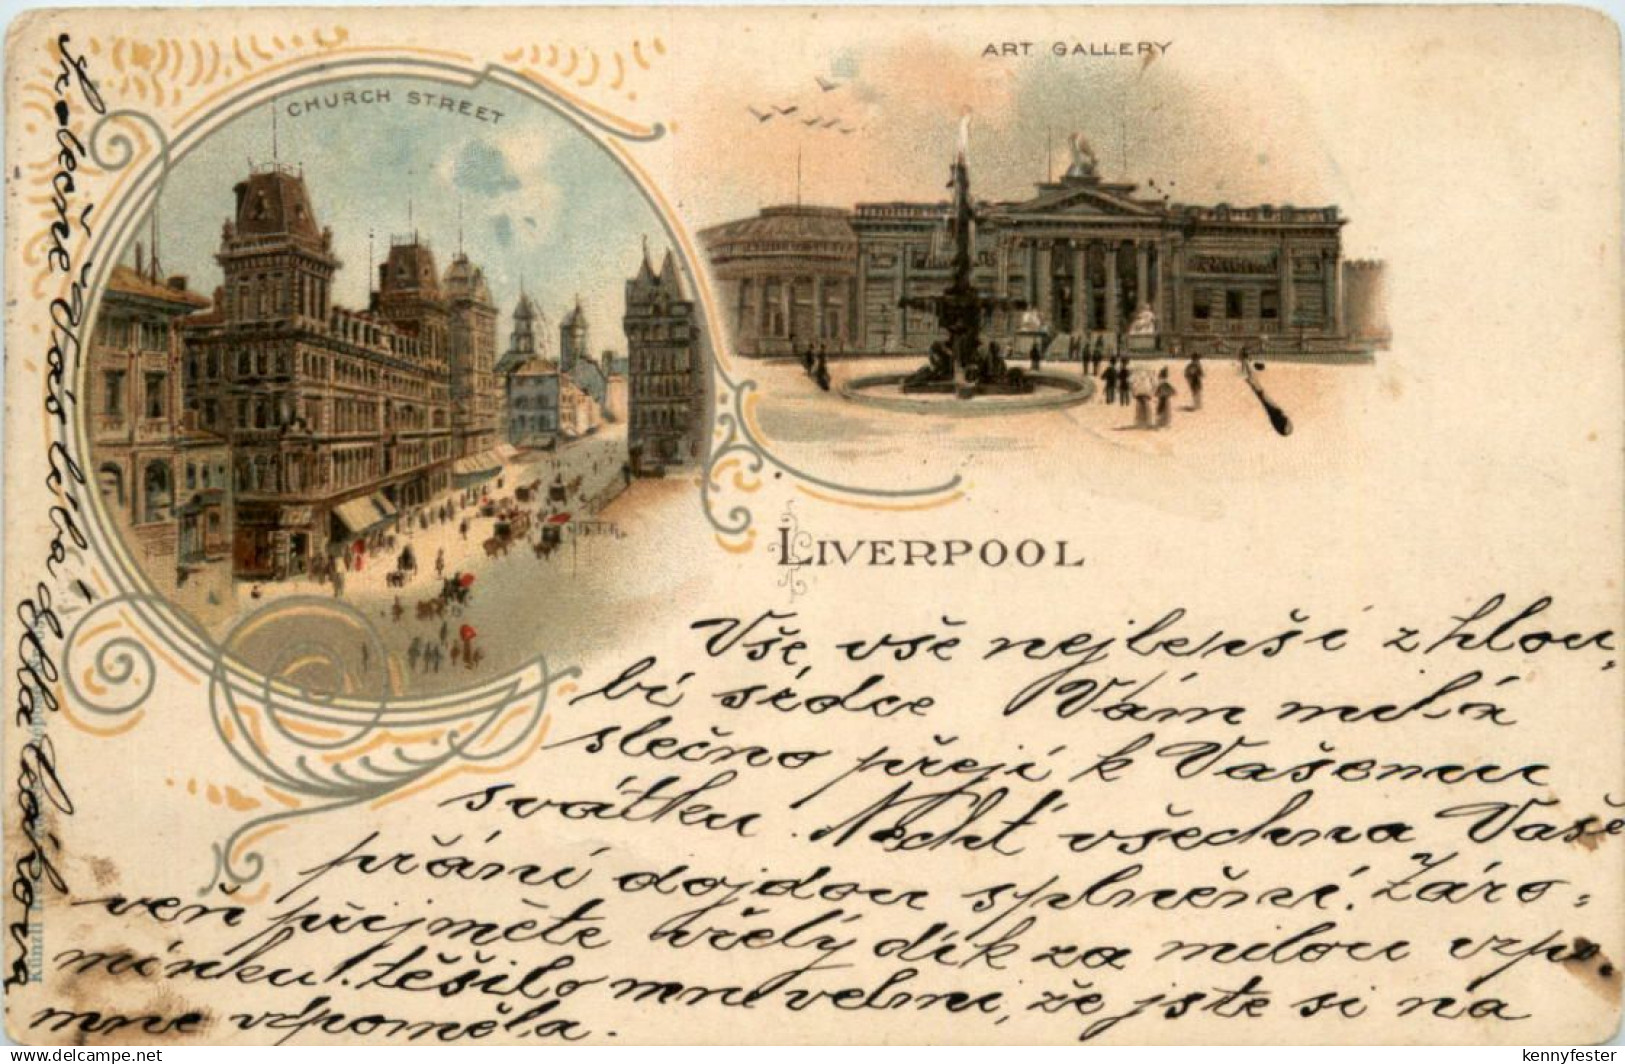 CHURCH STREET
ART GALLERY
LIVERPOOL
Vše, vše nejlepší z hlou-
bí srdce Vám milá
slečno přeji k Vašemu
svátku. Nechť všechna Vaše
přání dojdou splnění. Záro-
veň přijměte vřelý dík za milou vzpo-
mínku! těšilo mne velmi, že jste si na
mne vzpoměla.
Srdečně Vás líbá
Künzli
www.delcampe.net
kennyfester